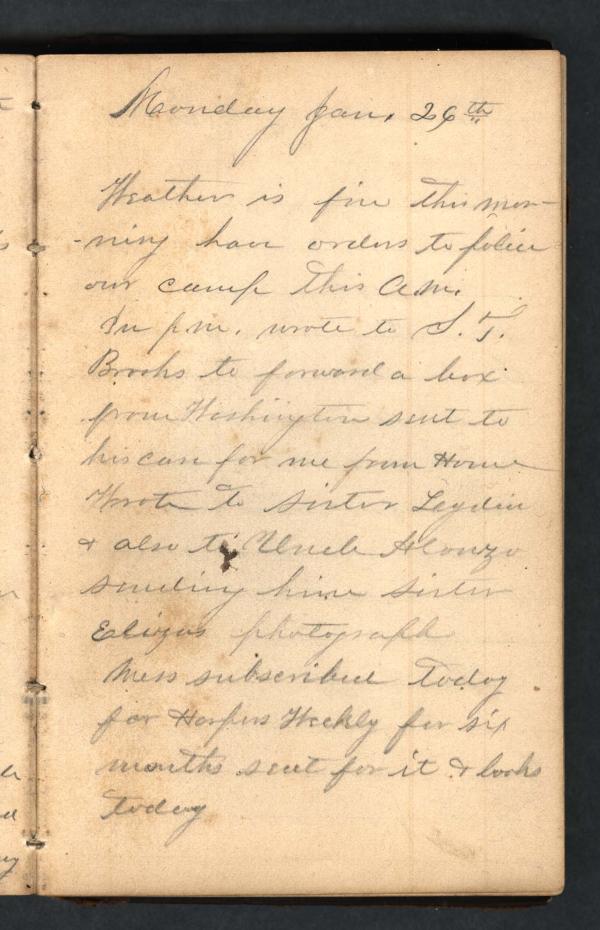 Monday Jan. 26th
Weather is fine this mor-
-ning have orders to police
our camp this A.M.
In p.m. wrote to S. T.
Brooks to forward a box
from Washington sent to
his care for me from Home
Wrote to sister Leydia
& also to Uncle Alonzo
sending him sister
Elizas photograph
Mess subscribed today
for Harpers Weekly for six
months sent for it & books
today